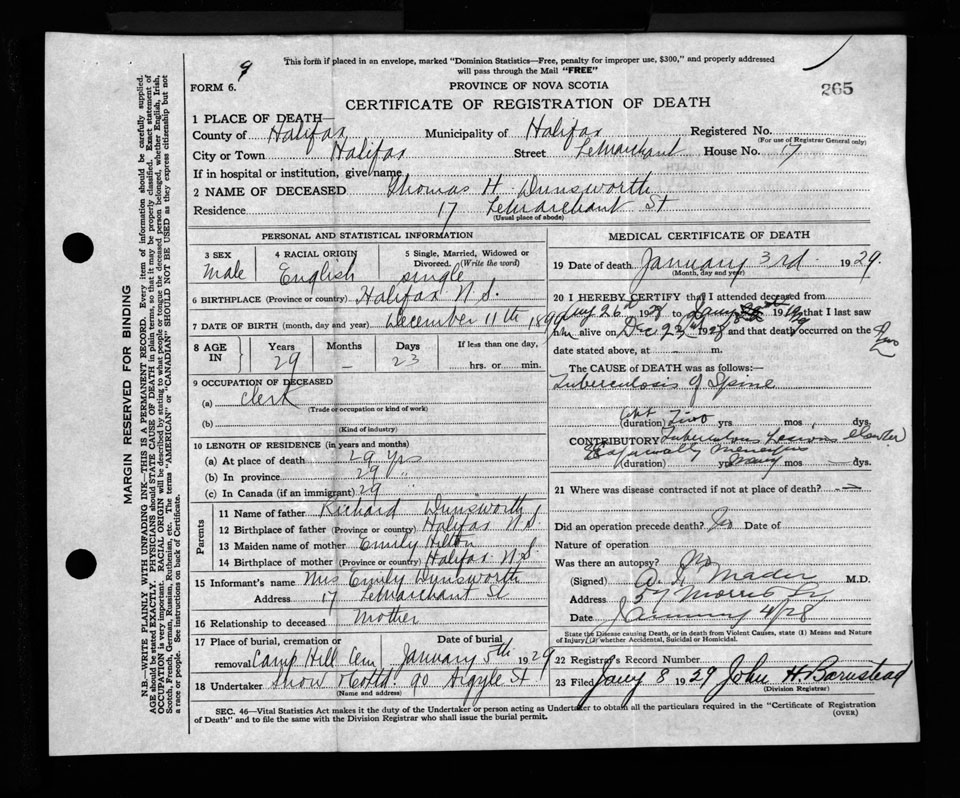 9
This form if placed in an envelope, marked "Dominion Statistics—Free, penalty for improper use, $300," and properly addressed
will pass through the Mail "FREE"
FORM 6.
PROVINCE OF NOVA SCOTIA
265
CERTIFICATE OF REGISTRATION OF DEATH
MARGIN RESERVED FOR BINDING
N.B.—WRITE PLAINLY WITH UNFADING INK—THIS IS A PERMANENT RECORD. Every item of information should be carefully supplied.
AGE should be stated EXACTLY. PHYSICIANS should STATE CAUSE OF DEATH in plain terms, so that it may be properly classified. Exact statement of
OCCUPATION is very important. RACIAL ORIGIN will be described by stating to what people or tongue the deceased person belonged, whether English, Irish,
Scotch, French, German, Russian, Ruthenian, etc. The terms "AMERICAN" or "CANADIAN" SHOULD NOT BE USED as they express citizenship but not
a race or people. See instructions on back of Certificate.
1 PLACE OF DEATH—
County of Halifax Municipality of Halifax Registered No.
(For use of Registrar General only)
City or Town Halifax Street LeMarchant House No. 17
If in hospital or institution, give name
2 NAME OF DECEASED Thomas H. Dunsworth
Residence 17 LeMarchant St
(Usual place of abode)
PERSONAL AND STATISTICAL INFORMATION
3 SEX Male
4 RACIAL ORIGIN English
5 Single, Married, Widowed or Divorced. (Write the word) single
6 BIRTHPLACE (Province or country) Halifax N.S.
7 DATE OF BIRTH (month, day and year) December 11th 189
8 AGE IN Years 29 Months — Days 23 If less than one day, hrs. or min.
9 OCCUPATION OF DECEASED
(a) Clerk
(Trade or occupation or kind of work)
(b)
(Kind of industry)
10 LENGTH OF RESIDENCE (in years and months)
(a) At place of death 29 yrs
(b) In province 29 "
(c) In Canada (if an immigrant) 29 "
Parents
11 Name of father Richard Dunsworth
12 Birthplace of father (Province or country) Halifax N.S.
13 Maiden name of mother Emily Hilton
14 Birthplace of mother (Province or country) Halifax N.S.
15 Informant's name Mrs Emily Dunsworth
Address 17 LeMarchant St
16 Relationship to deceased Mother
17 Place of burial, cremation or removal Camp Hill Cem Date of burial January 5th 1929
18 Undertaker Snow & Co Ltd. 90 Argyle St
(Name and address)
MEDICAL CERTIFICATE OF DEATH
19 Date of death January 3rd 1929.
(Month, day and year)
20 I HEREBY CERTIFY that I attended deceased from
26 19 to 19 that I last saw
him alive on Dec 23rd 1928 and that death occurred on the
date stated above, at m.
The CAUSE OF DEATH was as follows:—
Tuberculosis of Spine
(duration) Two yrs. mos. dys.
CONTRIBUTORY Tuberculous Lesions
Especially Meninges
(duration) yrs. mos. dys.
21 Where was disease contracted if not at place of death?
Did an operation precede death? No Date of
Nature of operation
Was there an autopsy? No
(Signed) Mader M.D.
Address 57 Morris St
Date January 4/28
State the Disease causing Death, or in death from Violent Causes, state (1) Means and Nature
of Injury (2) whether Accidental, Suicidal or Homicidal.
22 Registrar's Record Number
23 Filed Jany 8 1929 John H. Barnstead
(Division Registrar)
SEC. 46—Vital Statistics Act makes it the duty of the Undertaker or person acting as Undertaker to obtain all the particulars required in the "Certificate of Registration
of Death" and to file the same with the Division Registrar who shall issue the burial permit.
(OVER)